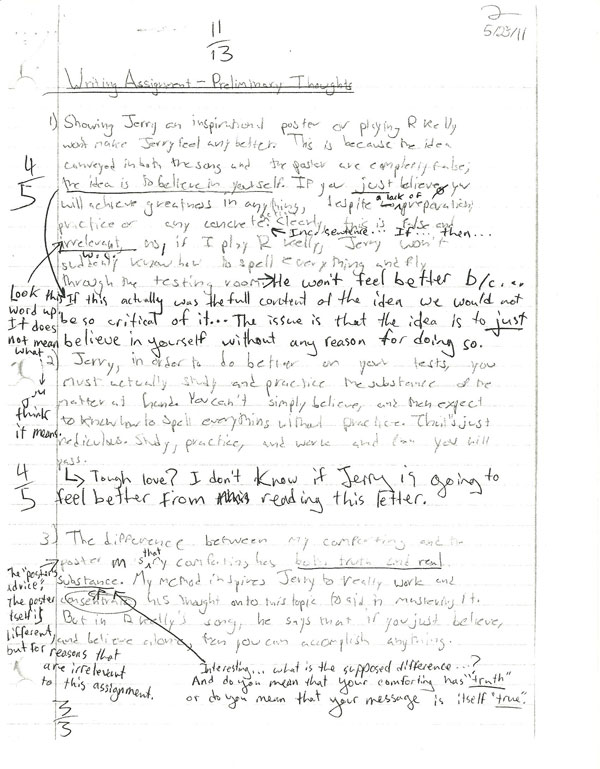 2
5/23/11
11
13
Writing Assignment - Preliminary Thoughts
1) Showing Jerry an inspirational poster or playing R Kelly
won't make Jerry feel any better. This is because the idea
conveyed in both the song and the poster are completely false;
4
5
the idea is to believe in yourself. If you just believe you
will achieve greatness in anything, despite a lack of preperation,
practice or any concrete clearly, this is false and
← Inc. sentence... If... then...
irrelevant, no, if I play R Kelly, Jerry won't
w.c.
suddenly know how to spell everything and fly
through the testing room. → He won't feel better b/c...
Look this
word up.
It does
not mean
what
you
think
it means.
If this actually was the full content of the idea we would not
be so critical of it... The issue is that the idea is to just
believe in yourself without any reason for doing so.
2) Jerry, in order to do better on your tests, you
must actually study and practice the substance of the
matter at hand. You can't simply believe, and then expect
to know how to spell everything without practice. That's just
rediculous. Study, practice, and work and you will
pass.
4
5
↳ Tough love? I don't know if Jerry is going to
feel better from reading this letter.
3) The difference between my comforting and the
poster is that my comforting has both truth and real
substance. My method inspires Jerry to really work and
sp
consentrate his thought onto this topic to aid in mastering it.
But in R Kelly's song, he says that if you just believe,
and believe alone, then you can accomplish anything.
The "poster's
advice";
The poster
itself is
different,
but for
reasons that
are irrelevant
to this assignment.
Interesting... what is the supposed difference...?
And do you mean that your comforting has "truth"
or do you mean that your message is itself "true".
3
3